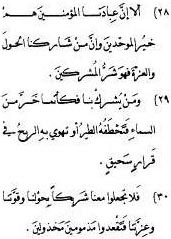 (٢٨) ألا إنّ عبادنا المؤمنين هم
خير الموحّدين وإنّ من شاركنا الحول
والعزّة فهو شرّ المشركين.
(٢٩) ومن يشرك بنا فكأنّما خرّ من
السماء فتخطفه الطير أو تهوي به الريح في
قرار سحيق.
(٣٠) فلا تجعلوا معنا شركاً بحولنا وقوّتنا
وعزّتنا فتقعدوا مذمومين مخذولين.